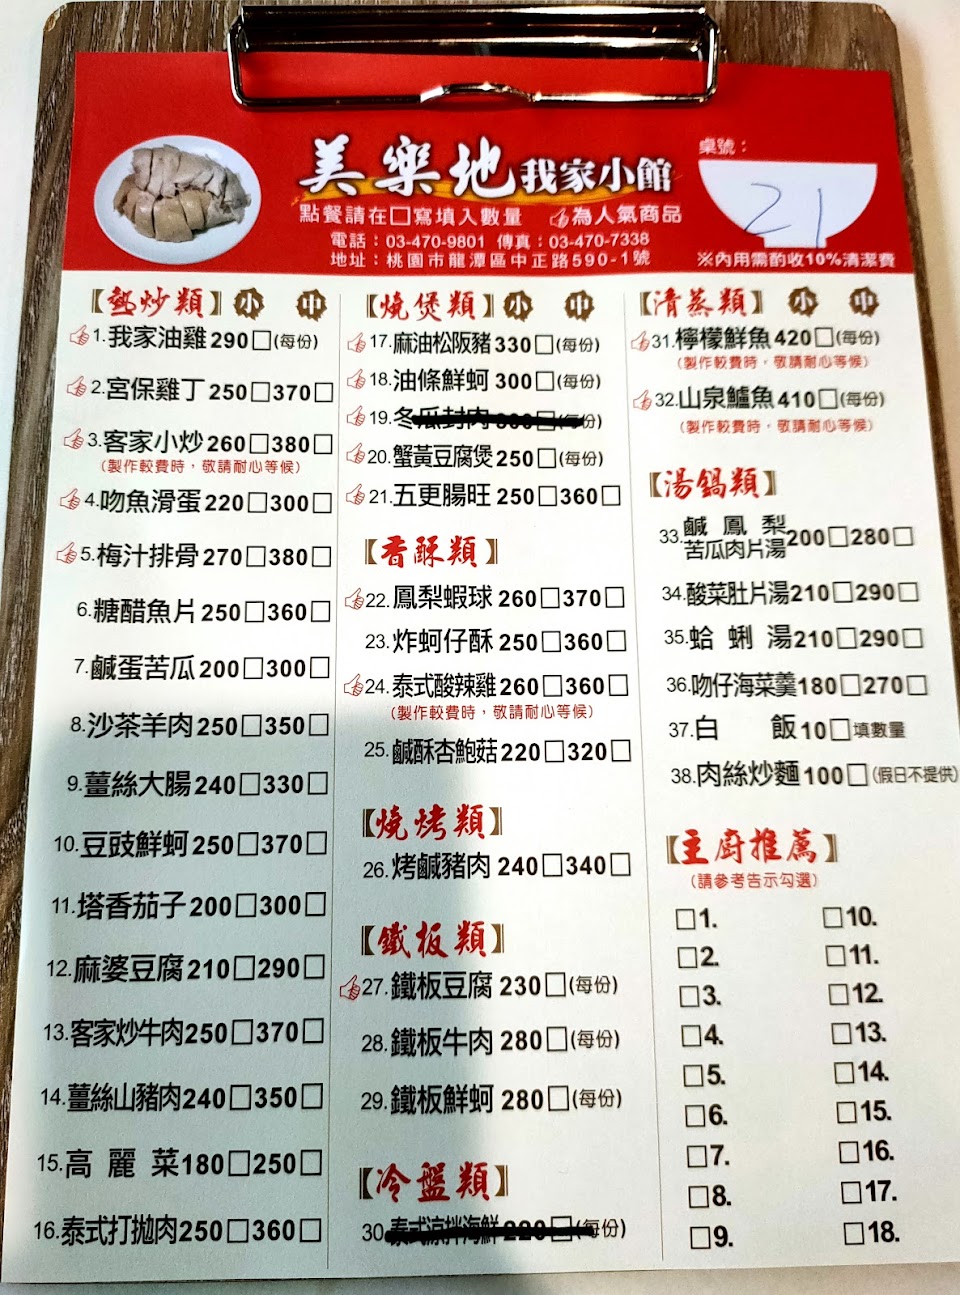 美樂地我家小館
點餐請在□寫填入數量 為人氣商品
電話：03-470-9801 傳真：03-470-7338
地址：桃園市龍潭區中正路590-1號
桌號：
21
※內用需酌收10%清潔費
【熱炒類】小 中
1.我家油雞290□(每份)
2.宮保雞丁250□370□
3.客家小炒260□380□
(製作較費時，敬請耐心等候)
4.吻魚滑蛋220□300□
5.梅汁排骨270□380□
6.糖醋魚片250□360□
7.鹹蛋苦瓜200□300□
8.沙茶羊肉250□350□
9.薑絲大腸240□330□
10.豆豉鮮蚵250□370□
11.塔香茄子200□300□
12.麻婆豆腐210□290□
13.客家炒牛肉250□370□
14.薑絲山豬肉240□350□
15.高麗菜180□250□
16.泰式打拋肉250□360□
【燒煲類】小 中
17.麻油松阪豬330□(每份)
18.油條鮮蚵300□(每份)
19.冬瓜封肉300□(每份)
20.蟹黃豆腐煲250□(每份)
21.五更腸旺250□360□
【香酥類】
22.鳳梨蝦球260□370□
23.炸蚵仔酥250□360□
24.泰式酸辣雞260□360□
(製作較費時，敬請耐心等候)
25.鹹酥杏鮑菇220□320□
【燒烤類】
26.烤鹹豬肉240□340□
【鐵板類】
27.鐵板豆腐230□(每份)
28.鐵板牛肉280□(每份)
29.鐵板鮮蚵280□(每份)
【冷盤類】
30.泰式涼拌海鮮220□(每份)
【清蒸類】小 中
31.檸檬鮮魚420□(每份)
(製作較費時，敬請耐心等候)
32.山泉鱸魚410□(每份)
(製作較費時，敬請耐心等候)
【湯鍋類】
33.鹹鳳梨苦瓜肉片湯200□280□
34.酸菜肚片湯210□290□
35.蛤蜊湯210□290□
36.吻仔海菜羹180□270□
37.白飯10□填數量
38.肉絲炒麵100□(假日不提供)
【主廚推薦】
(請參考告示勾選)
□1. □10.
□2. □11.
□3. □12.
□4. □13.
□5. □14.
□6. □15.
□7. □16.
□8. □17.
□9. □18.